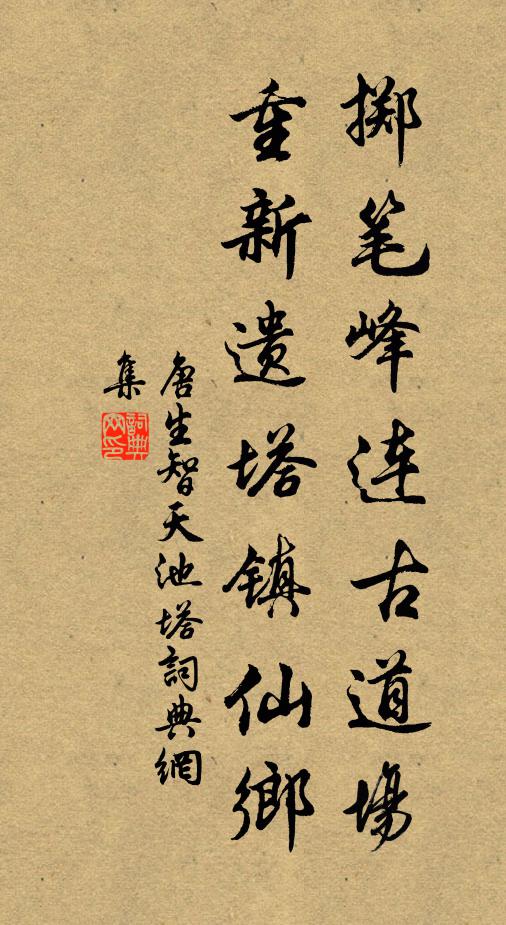 掷笔峰连古道場
重新遗塔镇仙鄉
唐生智天池塔詞典網
集
詞典
网印